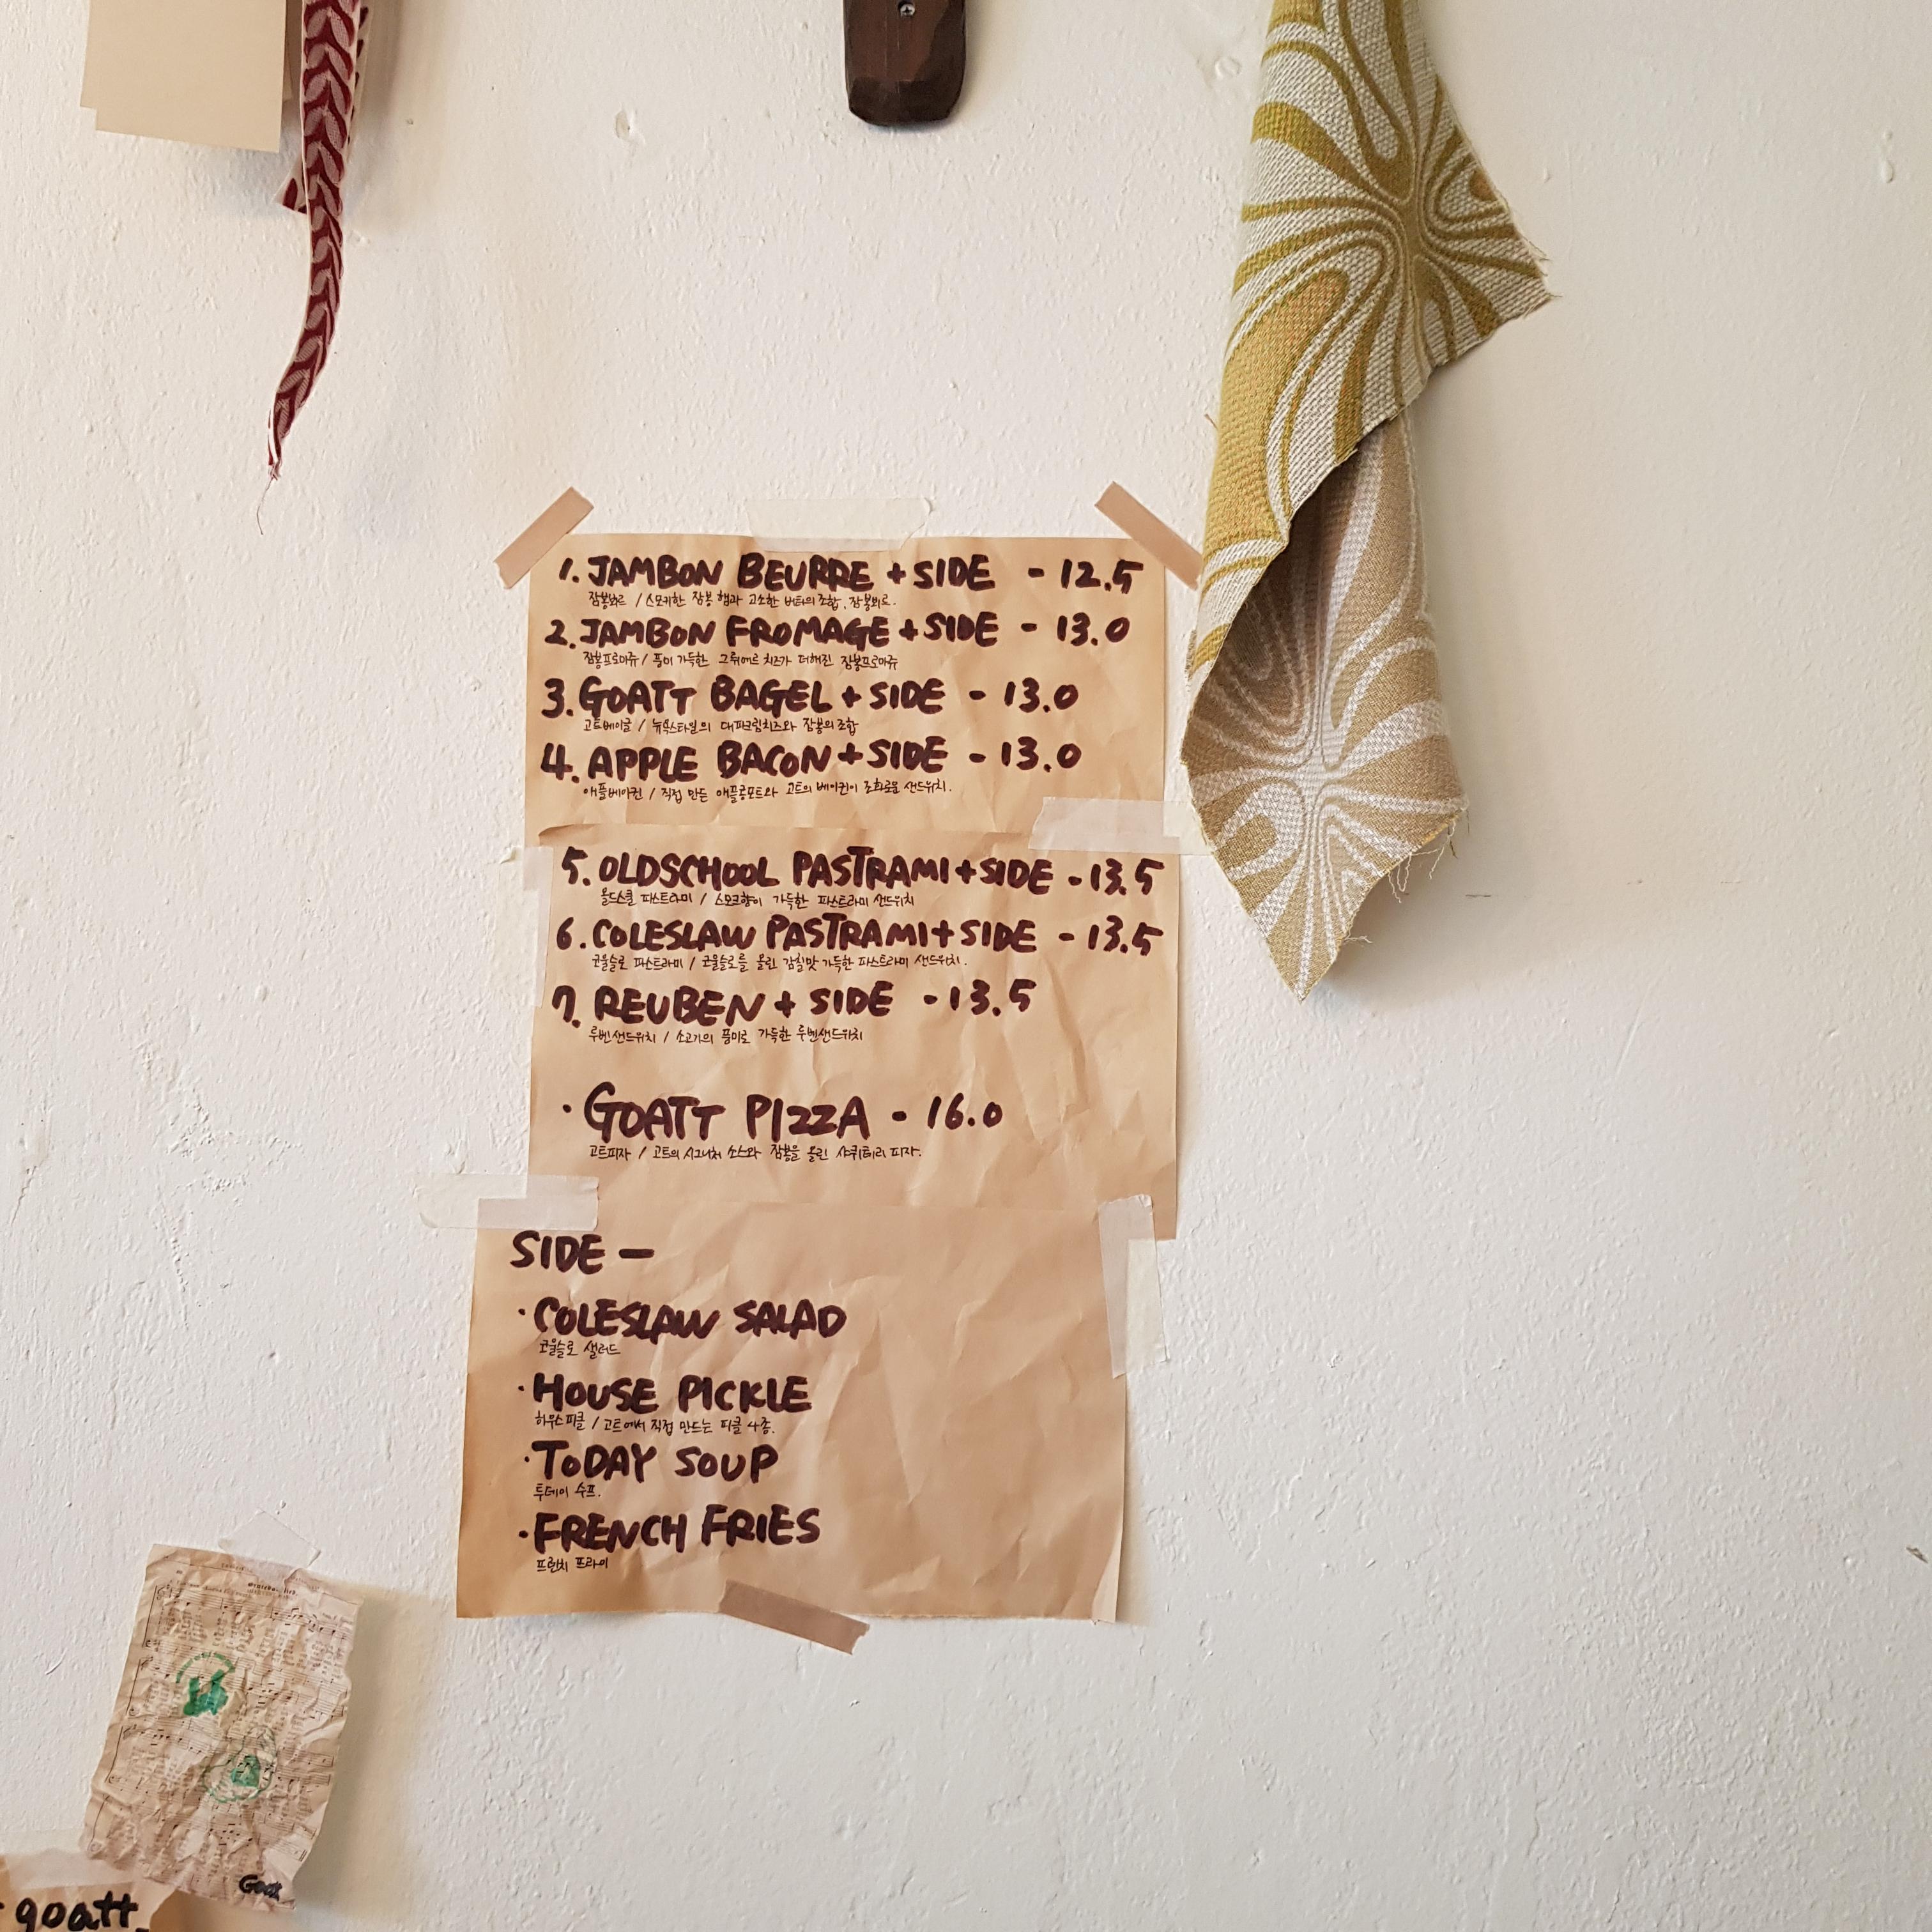 1. JAMBON BEURRE + SIDE - 12.5
잠봉뵈르 / 스모키한 잠봉 햄과 고소한 버터의 조합, 잠봉뵈르.
2. JAMBON FROMAGE + SIDE - 13.0
잠봉프로마쥬 / 풍미 가득한 그뤼에르 치즈가 더해진 잠봉프로마쥬
3. GOATT BAGEL + SIDE - 13.0
고트베이글 / 뉴욕스타일의 대파크림치즈와 잠봉의 조합
4. APPLE BACON + SIDE - 13.0
애플베이컨 / 직접 만든 애플콩포트와 고트의 베이컨이 조화로운 샌드위치.
5. OLDSCHOOL PASTRAMI + SIDE - 13.5
올드스쿨 파스트라미 / 스모크향이 가득한 파스트라미 샌드위치
6. COLESLAW PASTRAMI + SIDE - 13.5
코울슬로 파스트라미 / 코울슬로를 올린 감칠맛 가득한 파스트라미 샌드위치.
7. REUBEN + SIDE - 13.5
루벤샌드위치 / 소고기의 풍미로 가득한 루벤샌드위치
· GOATT PIZZA - 16.0
고트피자 / 고트의 시그니처 소스와 잠봉을 올린 샤퀴테리 피자.
SIDE —
· COLESLAW SALAD
코울슬로 샐러드
· HOUSE PICKLE
하우스피클 / 고트에서 직접 만드는 피클 4종.
· TODAY SOUP
투데이 수프.
· FRENCH FRIES
프렌치 프라이
goatt.